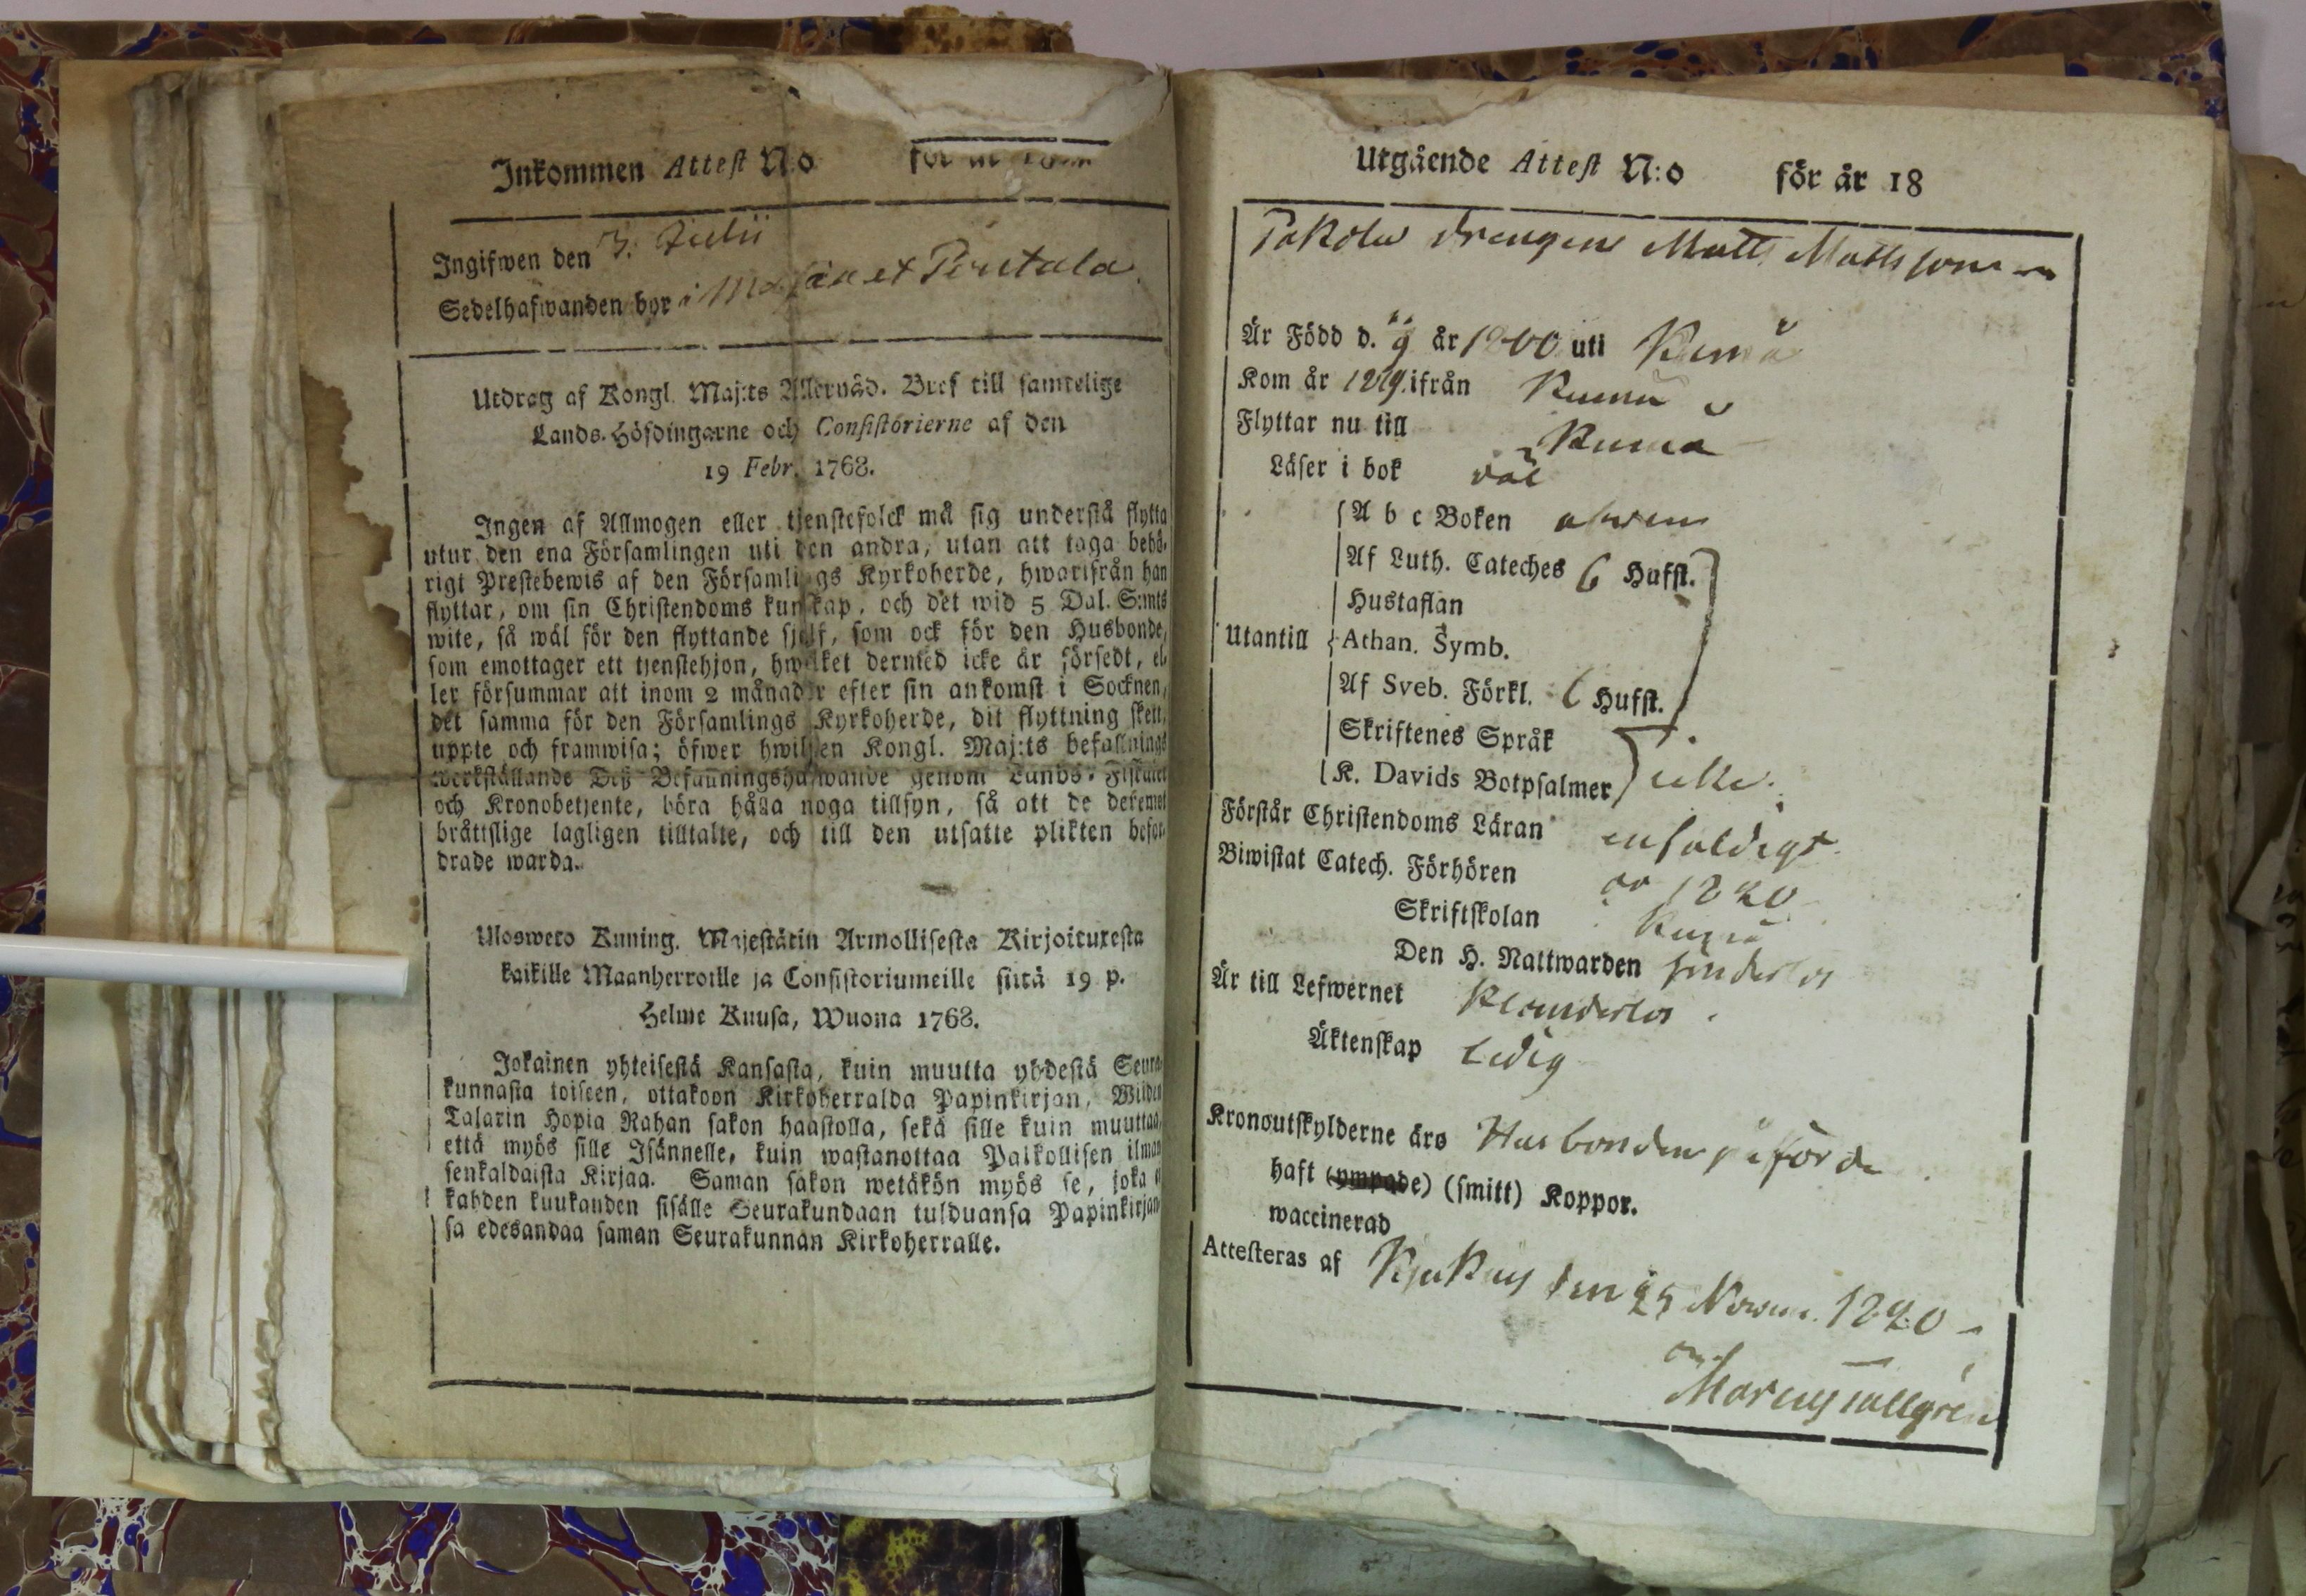 Inkommen Attest N:o för år 18
Ingifwen den 3. Julii
Sedelhafwanden bor i
Utdrag af Kongl. Maj:ts Allernåd. Bref till samtelige
Lands-Höfdingarne och Consistorierne af den
19 Febr. 1768.
Ingen af Allmogen eller tjenstefolck må sig understå flytta
utur den ena Församlingen uti den andra, utan att taga behö-
rigt Prestebewis af den Församlings Kyrkoherde, hwarifrån han
flyttar, om sin Christendoms kunskap, och det wid 5 Dal. S:mts
wite, så wäl för den flyttande sjelf, som ock för den Husbonde,
som emottager ett tjenstehjon, hwilket dermed icke är försedt, el-
ler försummar att inom 2 månader efter sin ankomst i Socknen,
det samma för den Församlings Kyrkoherde, dit flyttning skett,
uppte och framwisa; öfwer hwilken Kongl. Maj:ts befallnings
werkställande Deß Befallningshafwande genom Lands-Fiskaler
och Kronobetjente, böra hålla noga tillsyn, så att de
bråttslige lagligen tilltalte, och till den utsatte plikten befor-
drade warda.
Ulosweto Kuning. Majestätin Armollisesta Kirjoituxesta
kaikille Maanherroille ja Consistoriumeille siitä 19 p.
Helme Kuusa, Wuona 1768.
Jokainen yhteisestä Kansasta, kuin muutta yhdestä Seura-
kunnasta toiseen, ottakoon Kirkoherralda Papinkirjan, Wiiden
Talarin Hopia Rahan sakon haastolla, sekä sille kuin muuttaa,
että myös sille Isännelle, kuin wastanottaa Palkollisen ilman
senkaldaista Kirjaa. Saman sakon wetäkön myös se, joka ei
kahden kuukauden sisälle Seurakundaan tulduansa Papinkirjaan-
sa edesandaa saman Seurakunnan Kirkoherralle.
Utgående Attest N:o för år 18
drengen Matts Mattsson
Är Född d. 9 år 1800 uti Kumo
Kom år 1819 ifrån Kumo
Flyttar nu till Kumo
Läser i bok väl
A b c Boken
Af Luth. Cateches 6 Hufst.
Hustaflan
Utantill Athan. Symb.
Af Sveb. Förkl. 6 Hufst.
Skriftenes Språk
K. Davids Botpsalmer icke.
Förstår Christendoms Läran enfaldigt
Biwistat Catech. Förhören år 1820
Skriftskolan
Den H. Nattwarden
Är till Lefwernet klanderlös.
Äktenskap ledig
Kronoutskylderne äro Husbonden påförde
haft (ympade) (smitt) Koppor.
waccinerad
Attesteras af den 25 Novem. 1820
Marcus Tallgren